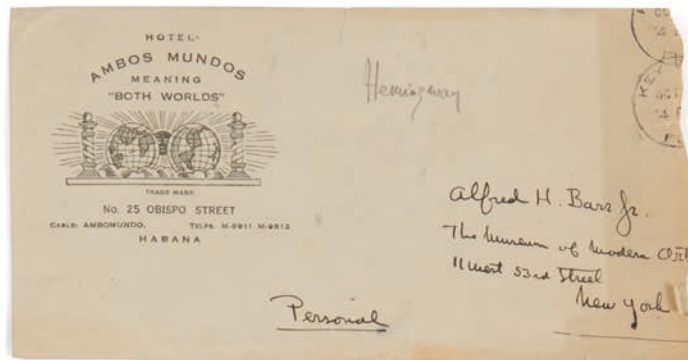 HOTEL
AMBOS MUNDOS
MEANING
"BOTH WORLDS"
TRADE MARK
No. 25 OBISPO STREET
CABLE: AMBOMUNDO. TELFS. M-9811 M-9812
HABANA
Hemingway
Alfred H. Barr Jr.
The Museum of Modern Art
11 West 53rd Street
New York
Personal